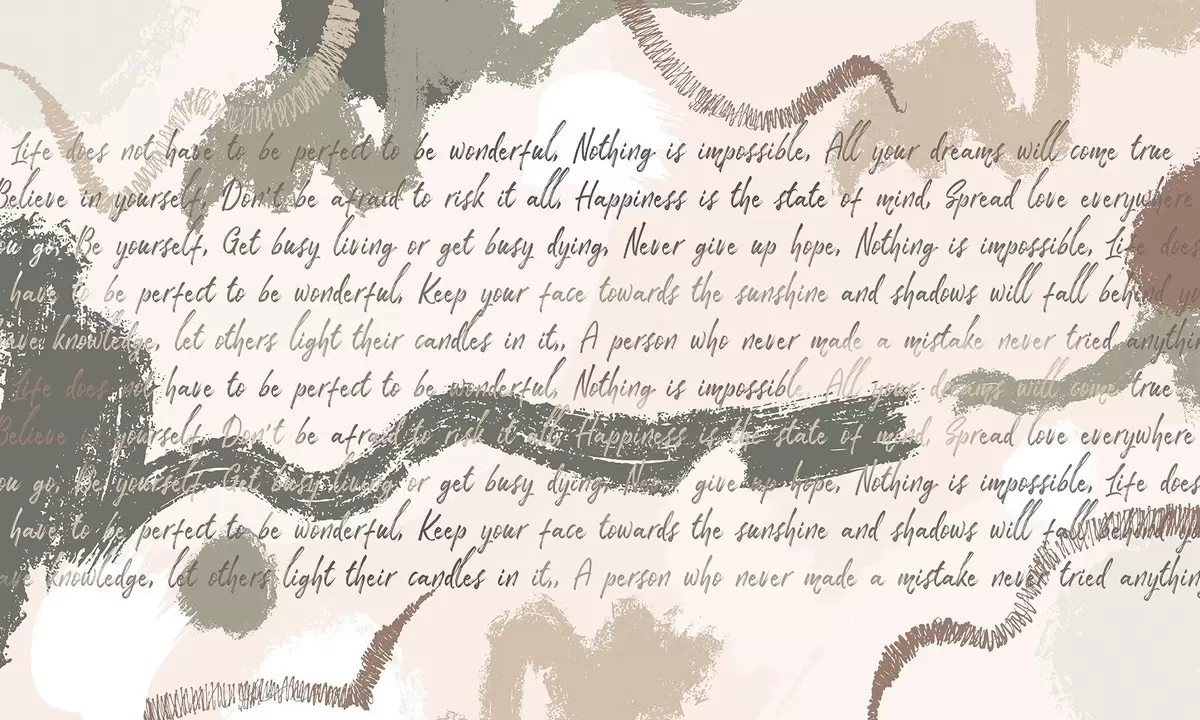 Life does not have to be perfect to be wonderful, Nothing is impossible, All your dreams will come true
Believe in yourself, Don't be afraid to risk it all, Happiness is the state of mind, Spread love everywhere
ou go, Be yourself, Get busy living or get busy dying, Never give up hope, Nothing is impossible, Life does
have to be perfect to be wonderful, Keep your face towards the sunshine and shadows will fall behind yo
ave knowledge, let others light their candles in it,, A person who never made a mistake never tried anythin
Life does not have to be perfect to be wonderful, Nothing is impossible, All your dreams will come true
Believe in yourself, Don't be afraid to risk it all, Happiness is the state of mind, Spread love everywhere
ou go, Be yourself, Get busy living or get busy dying, Never give up hope, Nothing is impossible, Life does
have to be perfect to be wonderful, Keep your face towards the sunshine and shadows will fall behind yo
ave knowledge, let others light their candles in it,, A person who never made a mistake never tried anythin